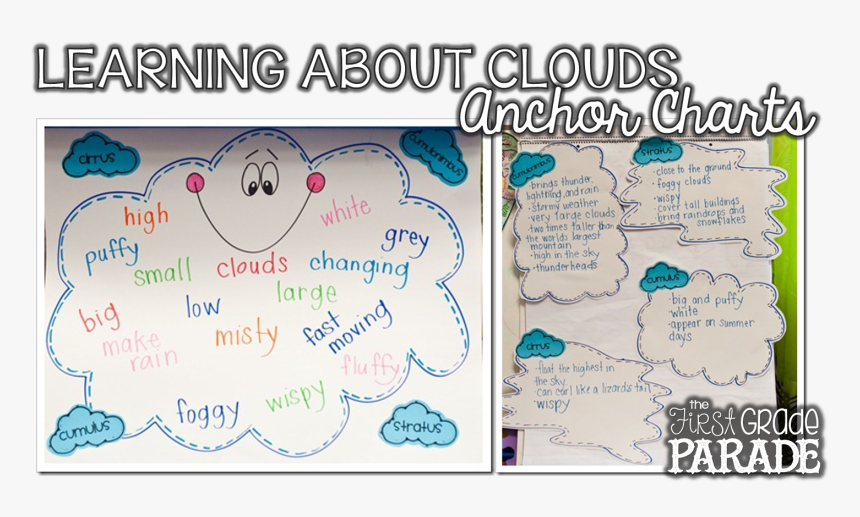 LEARNING ABOUT CLOUDS
Anchor Charts
cirrus
cumulonimbus
high
white
puffy
grey
small clouds changing
large
low
big
fast
moving
make
rain
misty
fluffy
wispy
foggy
cumulus
stratus
cumulonimbus
·brings thunder,
lightning, and rain
·stormy weather
·very large clouds
two times taller than
the worlds largest
mountain
·high in the sky
·thunderheads
stratus
·close to the ground
·foggy clouds
·wispy
·cover tall buildings
·bring raindrops and
snowflakes
cumulus
·big and puffy
·white
·appear on summer
days
cirrus
·float the highest in
the sky
·can curl like a lizard's tail
·wispy
the
First Grade
PARADE